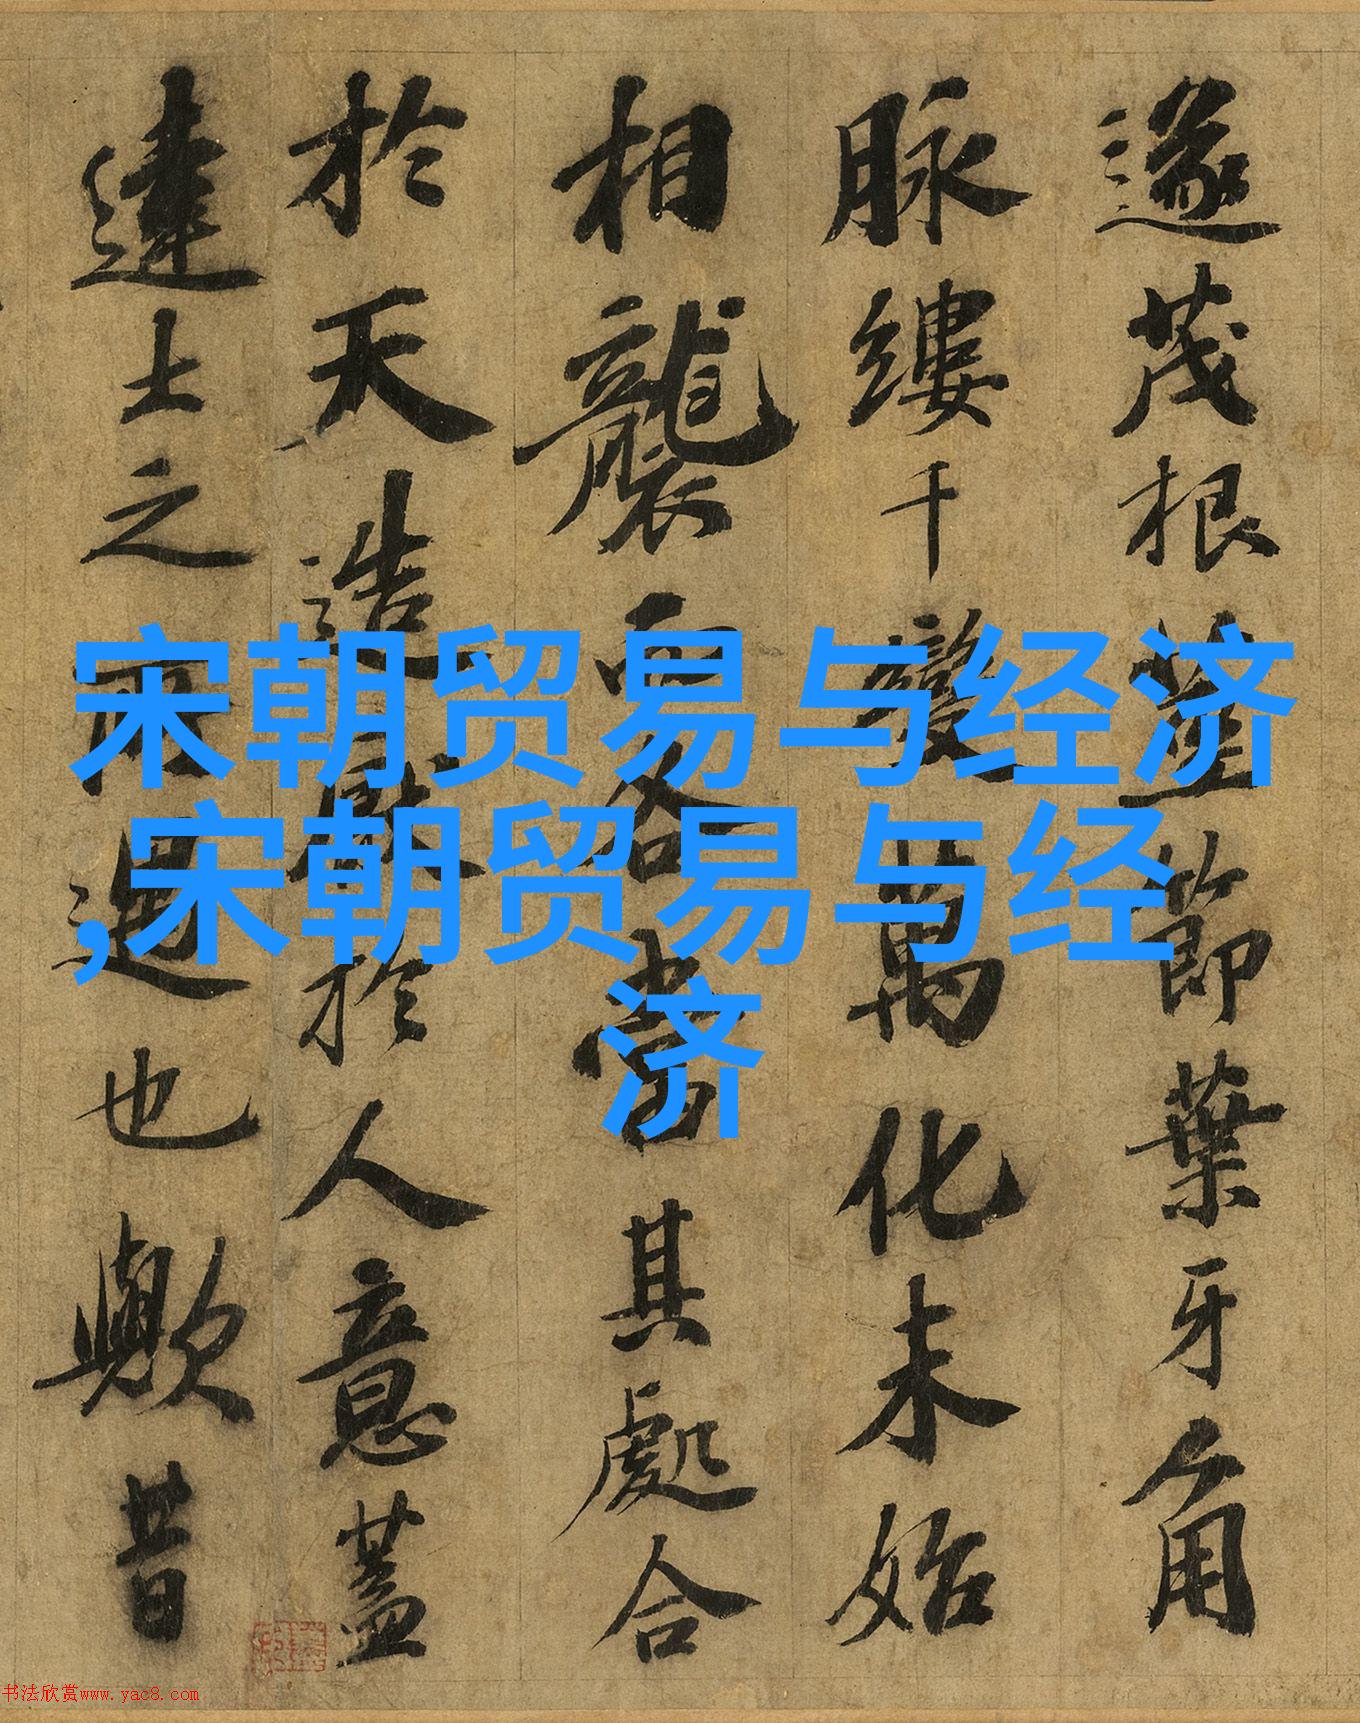 宋朝贸易与经济
,宋朝贸易与经
济
遂茂根莖節葉牙角
脉縷千變萬化未始
相襲而各當其處合
於天造猒於人意蓋
達士之所遇也歟昔
书法欣赏www.yac8.com